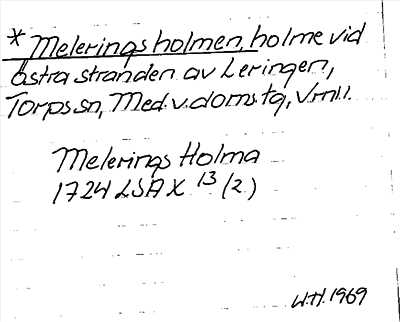 * Meleringsholmen, holme vid
östra stranden av Leringen,
Torps sn, Med. v. doms. tg, Vrnl.
Melerings Holma
1724 LSA X 13 (2)
W.H. 1969